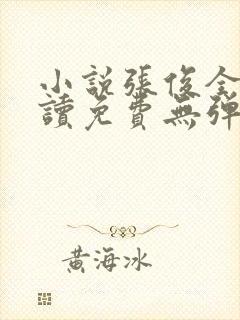 小說張俊全
讀免費無彈
黃海冰